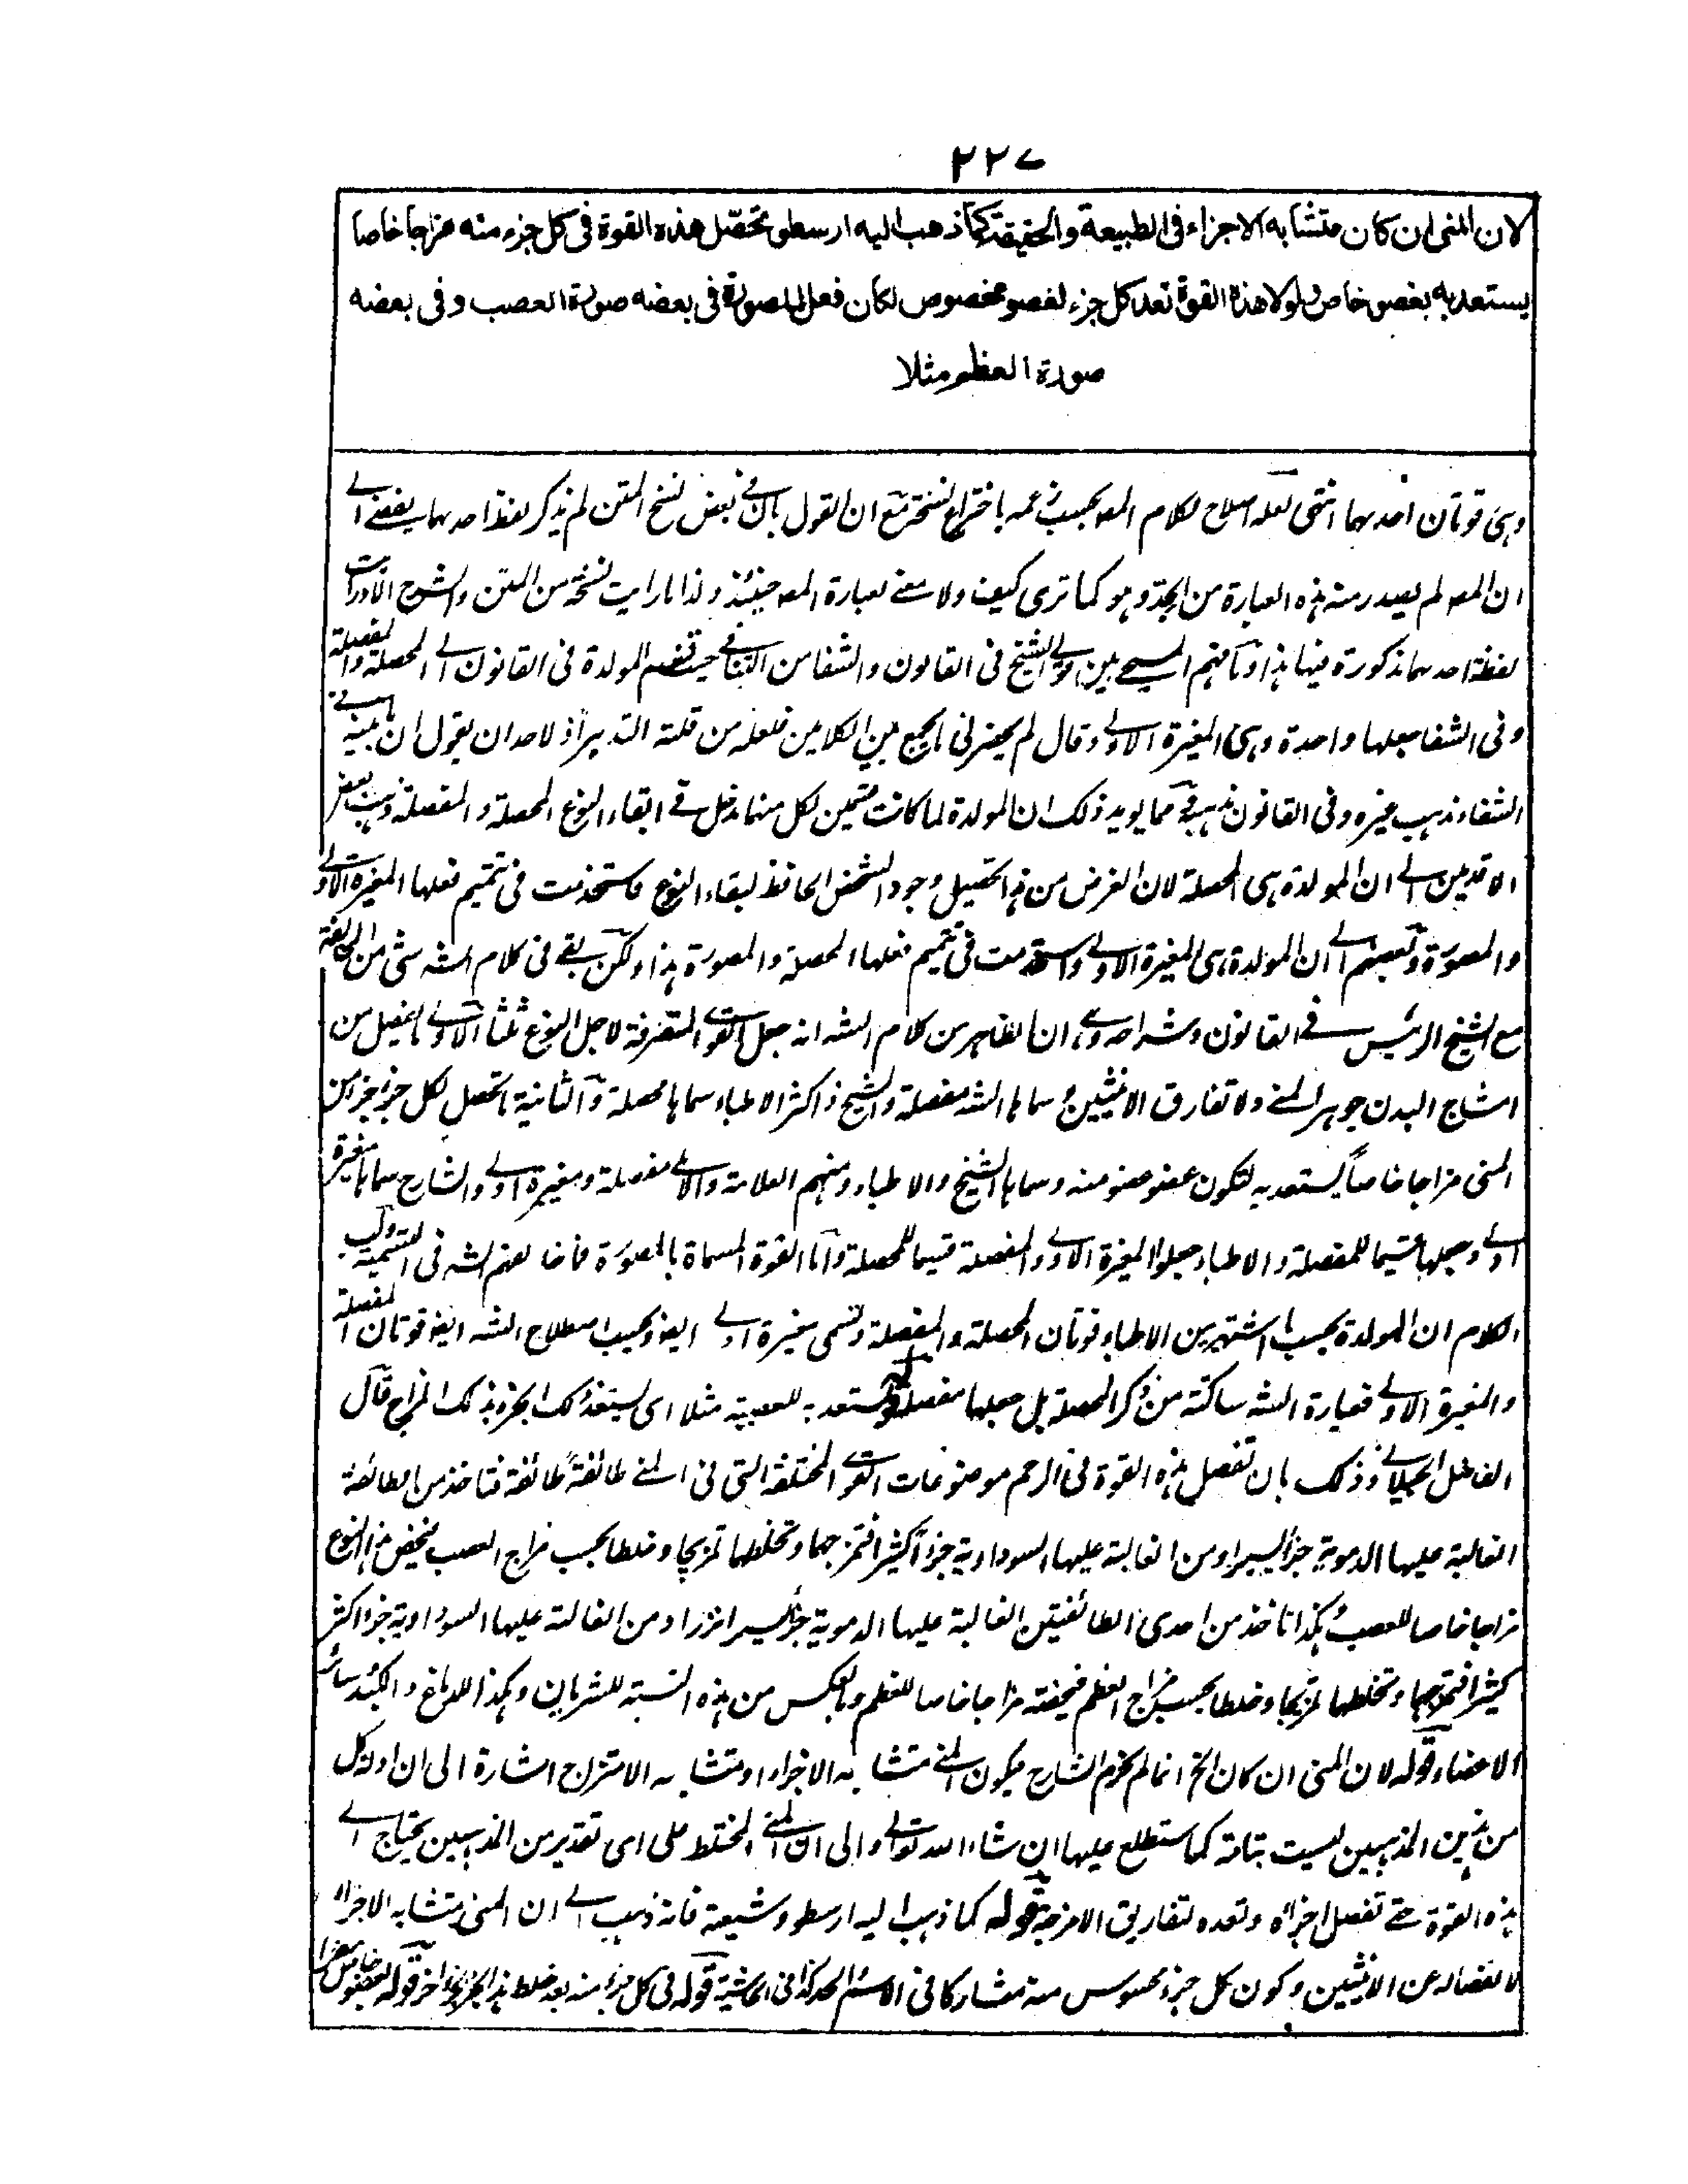 ٢٢٧
لان المنى ان كان متشابه الاجزاء فى الطبيعة والحقيقة كما ذهب اليه ارسطو تحصّل هذه القوة فى كل جزء منه مزاجا خاصا
يستعد به بعضو خاص ولولا هذه القوة تعد كل جزء لعضو مخصوص لكان فعل المصورة فى بعضه صورة العصب وفى بعضه
صورة العظم مثلا
وهى قوتان احدهما انتهى لعله اصلاح لكلام المصـ بحسب زعمه باختراع نسخة مع ان القول بان فى بعض نسخ المتن لم يذكر لفظ احدهما يفضى الى
ان المصـ لم يصدر منه هذه العبارة من الجد وهو كما ترى كيف ولا معنى لعبارة المصـ حينئذ ولذا ما رايت نسخة من المتن والشروح الا ورايت
لفظة احدهما مذكورة فيها هذا وما فهم المسيحى بين قولى الشيخ فى القانون والشفا من التنافى حيث قسم المولدة فى القانون الى المحصلة والمفصلة
وفى الشفا جعلها واحدة وهى المغيرة الاولى وقال لم يحضرنى الجمع بين الكلامين فلعله من قلة التدبر اذ لاحد ان يقول ان مبنى ما فى
الشفاء مذهب غيره وفى القانون مذهبه ومما يويد ذلك ان المولدة لما كانت قسمين لكل منهما دخل فى ابقاء النوع المحصلة والمفصلة ذهب بعض
الاقدمين الى ان المولدة هى المحصلة لان الغرض من هذا تحصيل وجود الشخص الحافظ لبقاء النوع فاستخدمت فى تتميم فعلها المغيرة الاولى
والمصورة وبعضهم الى ان المولدة هى المغيرة الاولى واستخدمت فى تتميم فعلها المحصلة والمصورة هذا ولكن بقى فى كلام الشـ شئ من المخالفة
مع الشيخ الرئيس فى القانون وشراحه وهى ان الظاهر من كلام الشـ انه جعل القوى المتصرفة لاجل النوع ثلثا الاولى ما يفصل من
امشاج البدن جوهر المنى ولا تفارق الانثيين وسماها الشـ مفصلة والشيخ واكثر الاطباء سماها محصلة والثانية ما تحصل لكل جزء جزء من
المنى مزاجا خاصاً يستعد به لتكون عضو عضو منه وسماها الشيخ والاطباء ومنهم العلامة والاملى مفصلة ومغيرة اولى والشارح سماها مغيرة
اولى وجعلها قسيما للمفصلة والاطباء جعلوا المغيرة الاولى والمفصلة قسيما للمحصلة واما القوة المسماة بالمصورة فما خالفهم الشـ فى التسمية ولب
الكلام ان المولدة بحسب ما اشتهر بين الاطباء قوتان المحصلة والمفصلة وتسمى مغيرة اولى ايضا وبحسب اصطلاح الشـ ايضا قوتان المفصلة
والمغيرة الاولى فعبارة الشـ ساكتة من ذكر المحصلة بل جعلها مفصلة قوله يستعد به للعصبية مثلا اى ليستعد ذلك الجزء بذلك المزاج قال
الفاضل الجيلانى وذلك بان تفصل هذه القوة فى الرحم موضوعات القوى المختلفة التى فى المنى طائفةً طائفة فتاخذ من الطائفة
الغالبة عليها الدموية جزأ يسيرا ومن الغالبة عليها السوداوية جزأ كثيرا فتمزجهما وتخلطهما تمزيجا وخلطا بحسب مزاج العصب فيحصل من هذا النوع
مزاجا خاصا للعصب وهكذا تاخذ من احدى الطائفتين الغالبة عليها الدموية جزأ يسيرا نزرا ومن الغالبة عليها السوداوية جزءا اكثر
كثيرا فتمزجهما وتخلطهما تمزيجا وخلطا بحسب مزاج العظم فيحصل مزاجا خاصا للعظم وبالعكس من هذه النسبة للشريان وهكذا للدماغ والكبد وسائر
الاعضاء قوله لان المنى ان كان الخ انما لم يجزم الشارح بكون المنى متشابه الاجزاء او متشابه الامتزاج اشارة الى ان ادلة كل
من هذين المذهبين ليست بتامة كما ستطلع عليها ان شاء الله تعالى والى ان المنى المختلط على اى تقدير من المذهبين يحتاج الى
هذه القوة حتى تفصل اجزائه وتعده لتفاريق الامزجة قوله كما ذهب اليه ارسطو وشيعته فانه ذهب الى ان المنى متشابه الاجزاء
لانفصاله عن الانثيين وكون كل جزء محسوس منه مشاركا فى الاسم والحد كذا فى الحاشية قوله فى كل جزء منه بعد خلط هذا الجزء بجزء اخر قوله لعضو خاص